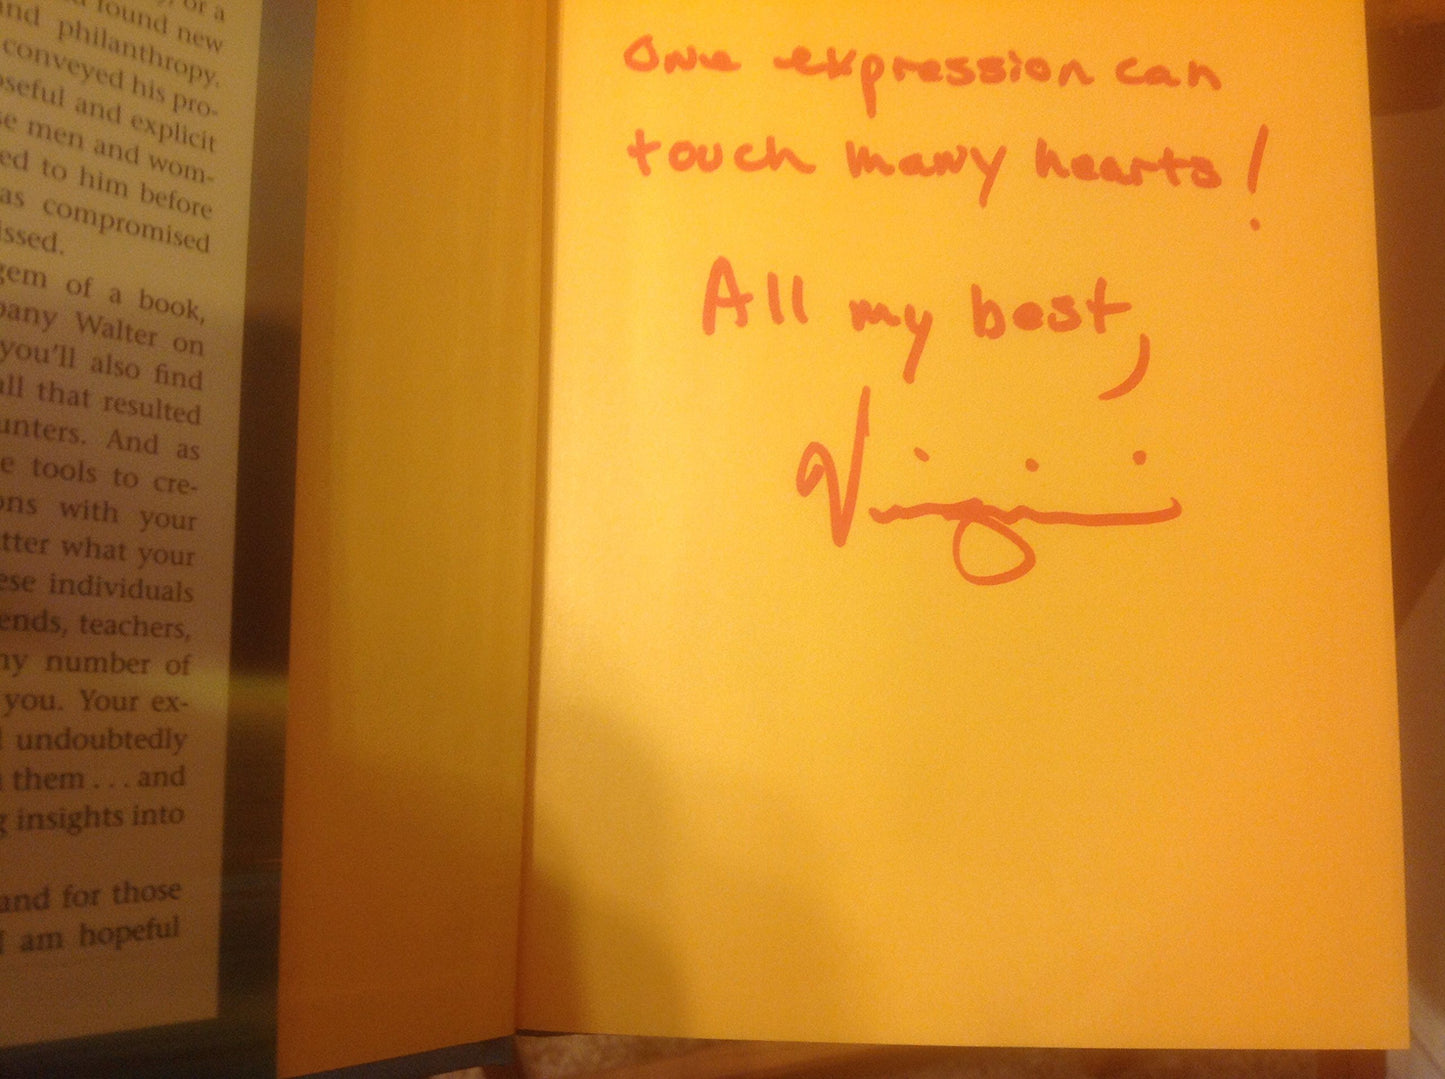 , or a
found new
and philanthropy.
conveyed his pro-
seful and explicit
se men and wom-
ed to him before
as compromised
issed.
gem of a book,
pany Walter on
you'll also find
all that resulted
unters. And as
e tools to cre-
ons with your
tter what your
ese individuals
ends, teachers,
ny number of
you. Your ex-
undoubtedly
them . . . and
g insights into
and for those
I am hopeful
One expression can
touch many hearts!
All my best,
Virginia